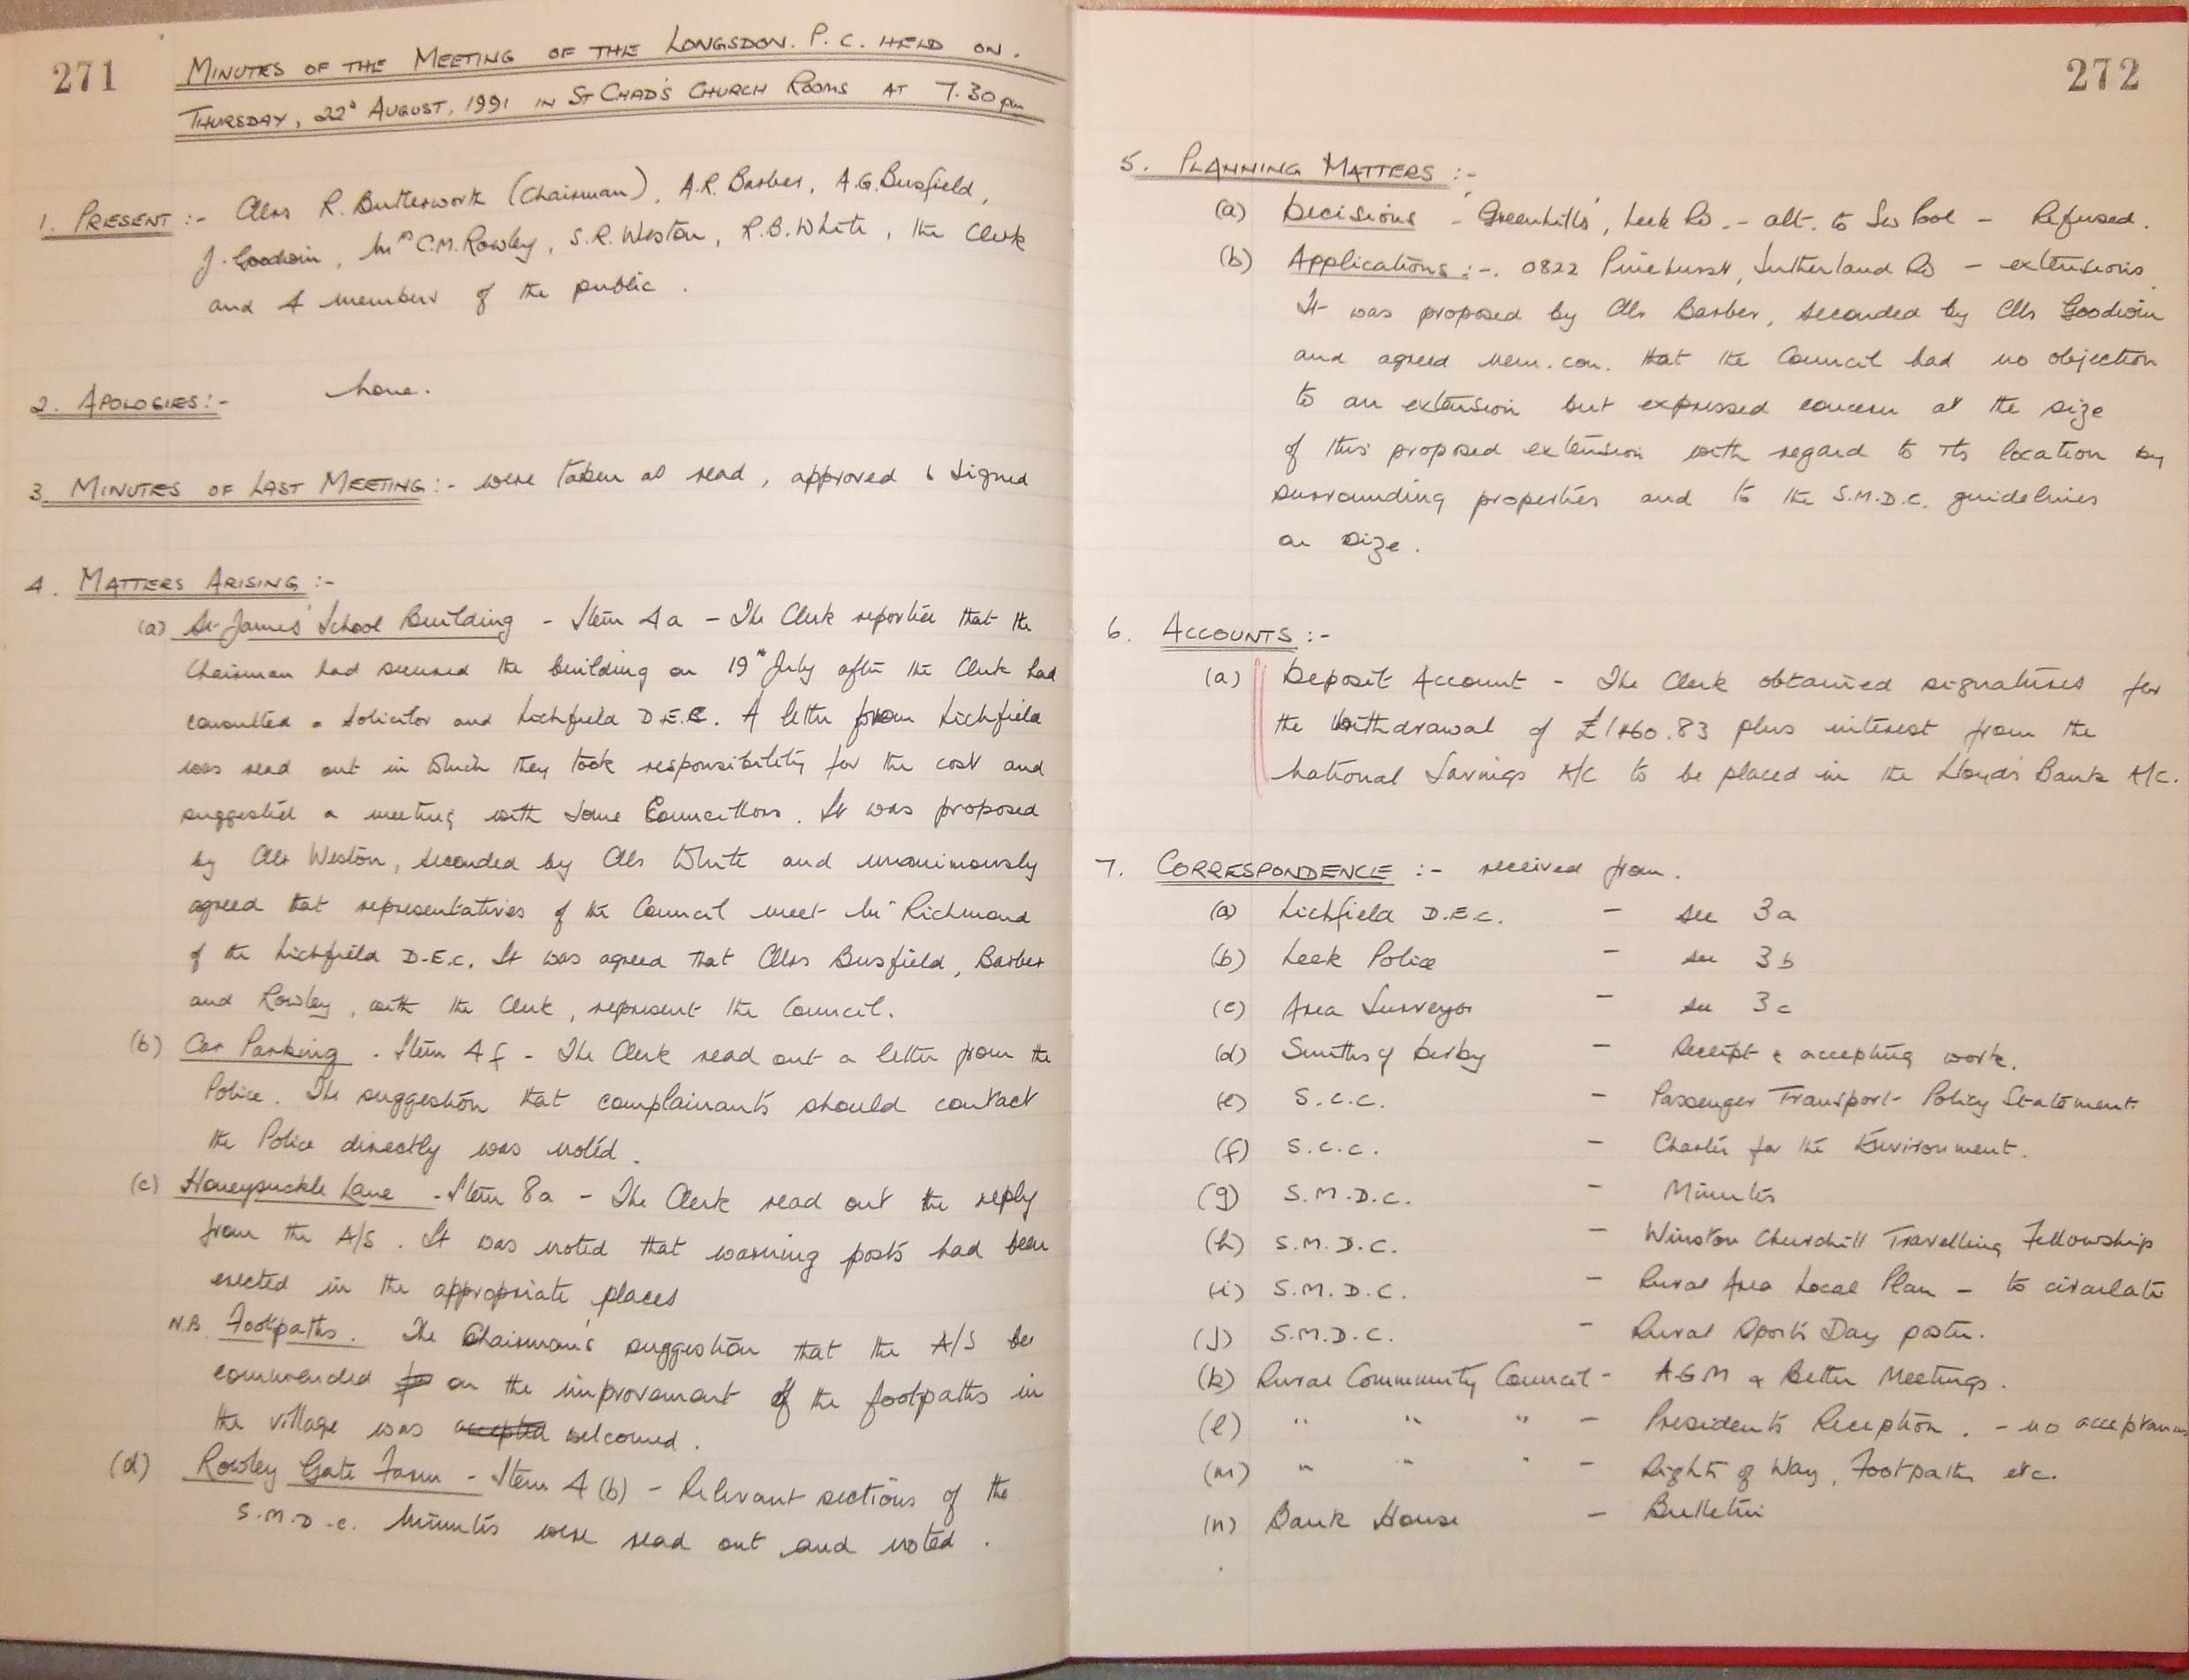 271
MINUTES OF THE MEETING OF THE LONGSDON. P. C. HELD ON.
THURSDAY, 22d AUGUST, 1991 IN ST CHAD'S CHURCH ROOMS AT 7.30pm
1. PRESENT :- Cllrs R. Butterworth (Chairman), A.R. Barber, A.G. Busfield,
J. Goodwin, Mrs C.M. Rowley, S.R. Weston, R.B. White, the Clerk
and 4 members of the public.
2. APOLOGIES:- None.
3. MINUTES OF LAST MEETING:- were taken as read, approved & signed
4. MATTERS ARISING :-
(a) St. James' School Building - Item 4a - The Clerk reported that the
Chairman had secured the building on 19th July after the Clerk had
consulted a Solicitor and Lichfield D.E.C. A letter from Lichfield
was read out in which they took responsibility for the cost and
suggested a meeting with some Councillors. It was proposed
by Cllr Weston, seconded by Cllr White and unanimously
agreed that representatives of the Council meet Mr Richmond
of the Lichfield D.E.C. It was agreed that Cllrs Busfield, Barber
and Rowley, with the Clerk, represent the Council.
(b) Car Parking. Item 4f - The Clerk read out a letter from the
Police. The suggestion that complainants should contact
the Police directly was noted.
(c) Honeysuckle Lane - Item 8a - The Clerk read out the reply
from the A/S. It was noted that warning posts had been
erected in the appropriate places
N.B. Footpaths. The Chairman's suggestion that the A/S be
commended for on the improvement of the footpaths in
the village was accepted welcomed.
(d) Rowley Gate Farm - Item 4(b) - Relevant sections of the
S.M.D.C. Minutes were read out and noted.
272
5. PLANNING MATTERS :-
(a) Decisions - 'Greenhills', Leek Rd. - alt. to Sw Pool - Refused.
(b) Applications :-. 0822 Pinehurst, Sutherland Rd - extensions.
It was proposed by Cllr Barber, seconded by Cllr Goodwin
and agreed nem. con. that the Council had no objection
to an extension but expressed concern at the size
of this proposed extension with regard to its location by
surrounding properties and to the S.M.D.C. guidelines
on size.
6. ACCOUNTS :-
(a) Deposit Account - The Clerk obtained signatures for
the withdrawal of plus interest from the
National Savings A/C to be placed in the Lloyds Bank A/C.
7. CORRESPONDENCE :- received from.
(a) Lichfield D.E.C. - see 3a
(b) Leek Police - see 3b
(c) Area Surveyor - see 3c
(d) Smiths of Derby - Receipt & accepting work.
(e) S.C.C. - Passenger Transport Policy Statement.
(f) S.C.C. - Charter for the Environment.
(g) S.M.D.C. - Minutes
(h) S.M.D.C. - Winston Churchill Travelling Fellowship
(i) S.M.D.C. - Rural Area Local Plan - to circulate
(j) S.M.D.C. - Rural Sports Day poster.
(k) Rural Community Council - A.G.M & Better Meetings.
(l) " " " - Presidents Reception. - no acceptances
(m) " " " - Rights of Way, Footpaths etc.
(n) Bank House - Bulletin